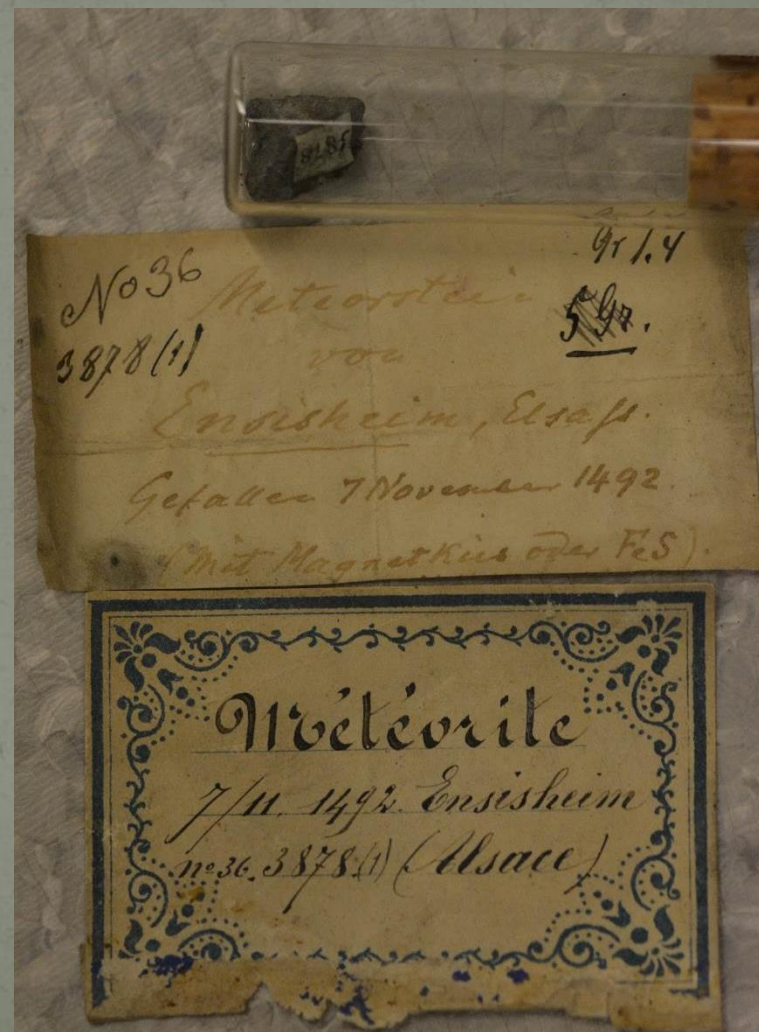 3878
Gr 1.4
No 36
Meteorstein
5 Gr.
3878 (1)
von
Ensisheim, Elsass.
Gefallen 7 November 1492.
(Mit Magnetkies oder FeS).
Météorite
7/11. 1492. Ensisheim
no 36. 3878 (1) (Alsace)